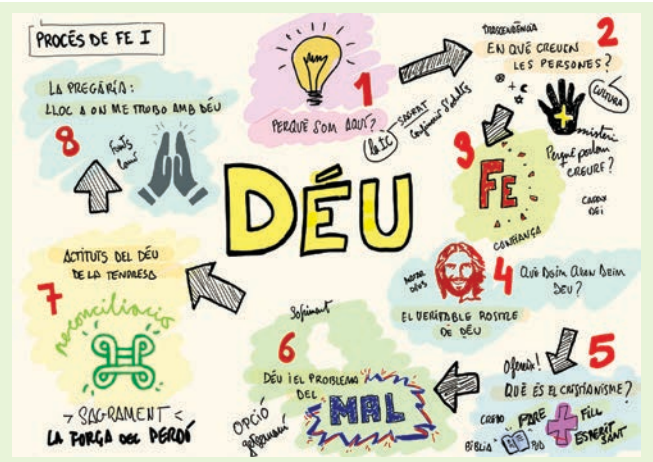 PROCÉS DE FE I
DÉU
1
PERQUÈ SOM AQUÍ?
SAGRAT
TRASCENDÈNCIA
2
EN QUÈ CREUEN
LES PERSONES?
CULTURA
misteri
Perquè podem
CREURE?
3
FE
CONFIANÇA
4
QUÈ DEIM QUAN DEIM
DEU?
EL VERITABLE ROSTRE
DE DÉU
5
QUÈ ÉS EL CRISTIANISME?
CREDO
PARE
FILL
ESPERIT
SANT
BÍBLIA
6
Sofriment
DÉU I EL PROBLEMA
DEL
MAL
OPCIÓ
7
ACTITUTS DEL DÉU
DE LA TENDRESA
reconciliació
SAGRAMENT
LA FORÇA DEL PERDÓ
8
LA PREGÀRIA:
LLOC A ON ME TROBO AMB DÉU